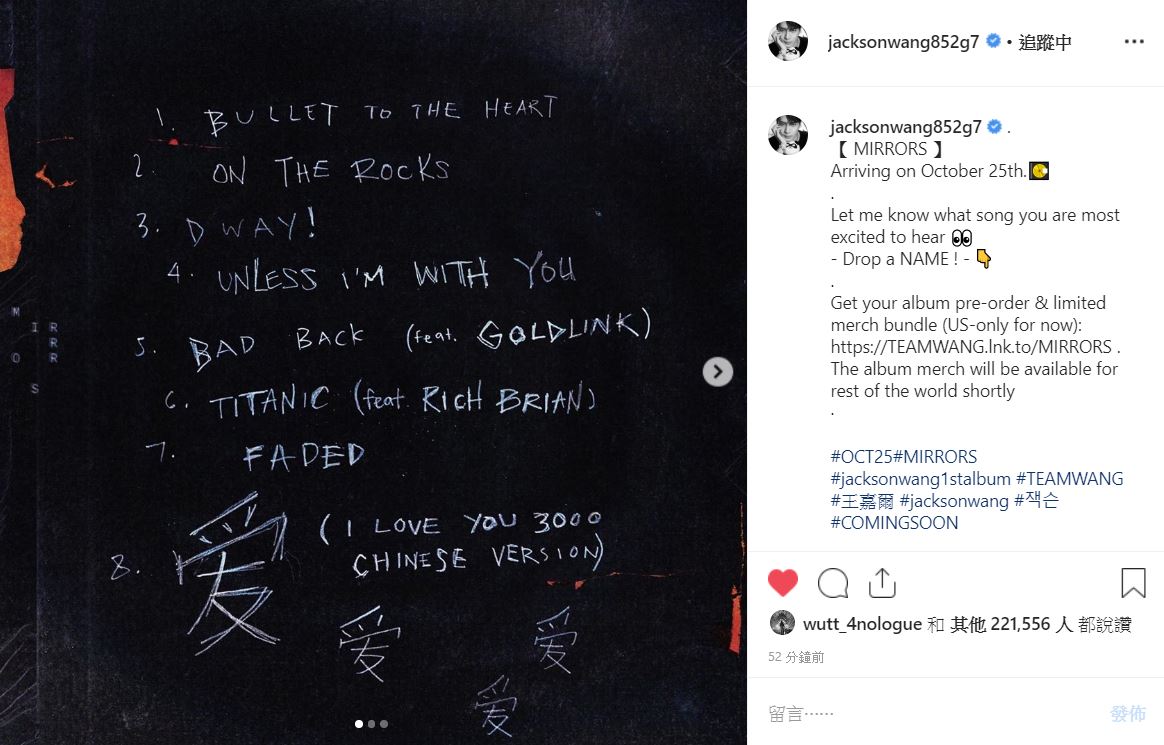 1. BULLET TO THE HEART
2. ON THE ROCKS
3. DWAY!
4. UNLESS I'M WITH YOU
5. BAD BACK (feat. GOLDLINK)
6. TITANIC (feat. RICH BRIAN)
7. FADED
8. 爱 (I LOVE YOU 3000
CHINESE VERSION)
爱
爱
爱
M
I R
R
O R
S
jacksonwang852g7 • 追蹤中
jacksonwang852g7 .
【 MIRRORS 】
Arriving on October 25th.📀
.
Let me know what song you are most
excited to hear 👀
- Drop a NAME ! - 👇
.
Get your album pre-order & limited
merch bundle (US-only for now):
https://TEAMWANG.lnk.to/MIRRORS .
The album merch will be available for
rest of the world shortly
.
#OCT25#MIRRORS
#jacksonwang1stalbum #TEAMWANG
#王嘉爾 #jacksonwang #잭슨
#COMINGSOON
wutt_4nologue 和 其他 221,556 人 都說讚
52 分鐘前
留言⋯⋯
發佈